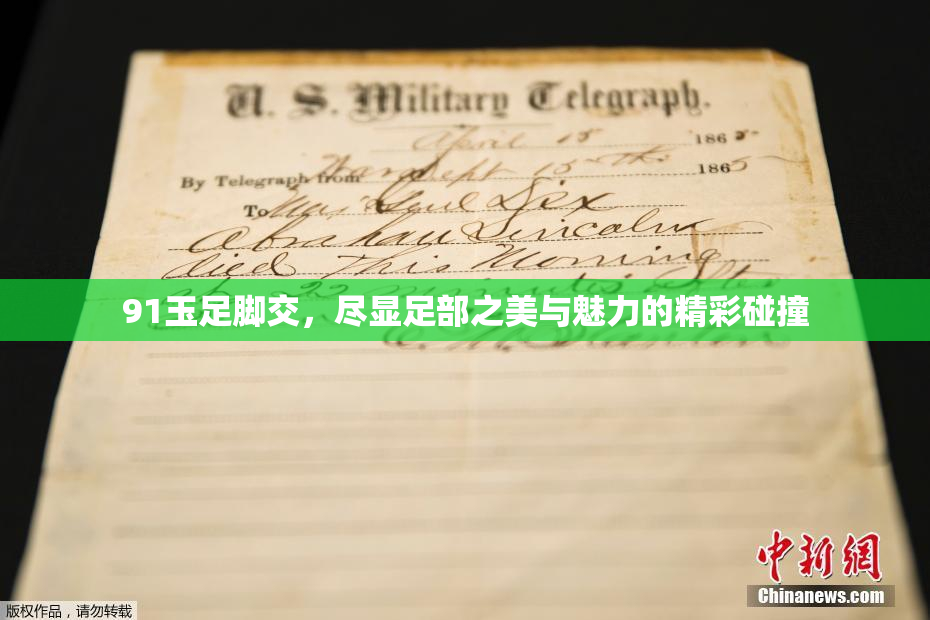 U. S. Military Telegraph.
April 15 1865
By Telegraph from War Dept 15th 1865
To Maj Genl Dix
Abraham Lincoln
died this Morning
at 22 minutes after
91玉足脚交，尽显足部之美与魅力的精彩碰撞
E. M. Stanton
中新网
Chinanews.com
版权作品，请勿转载